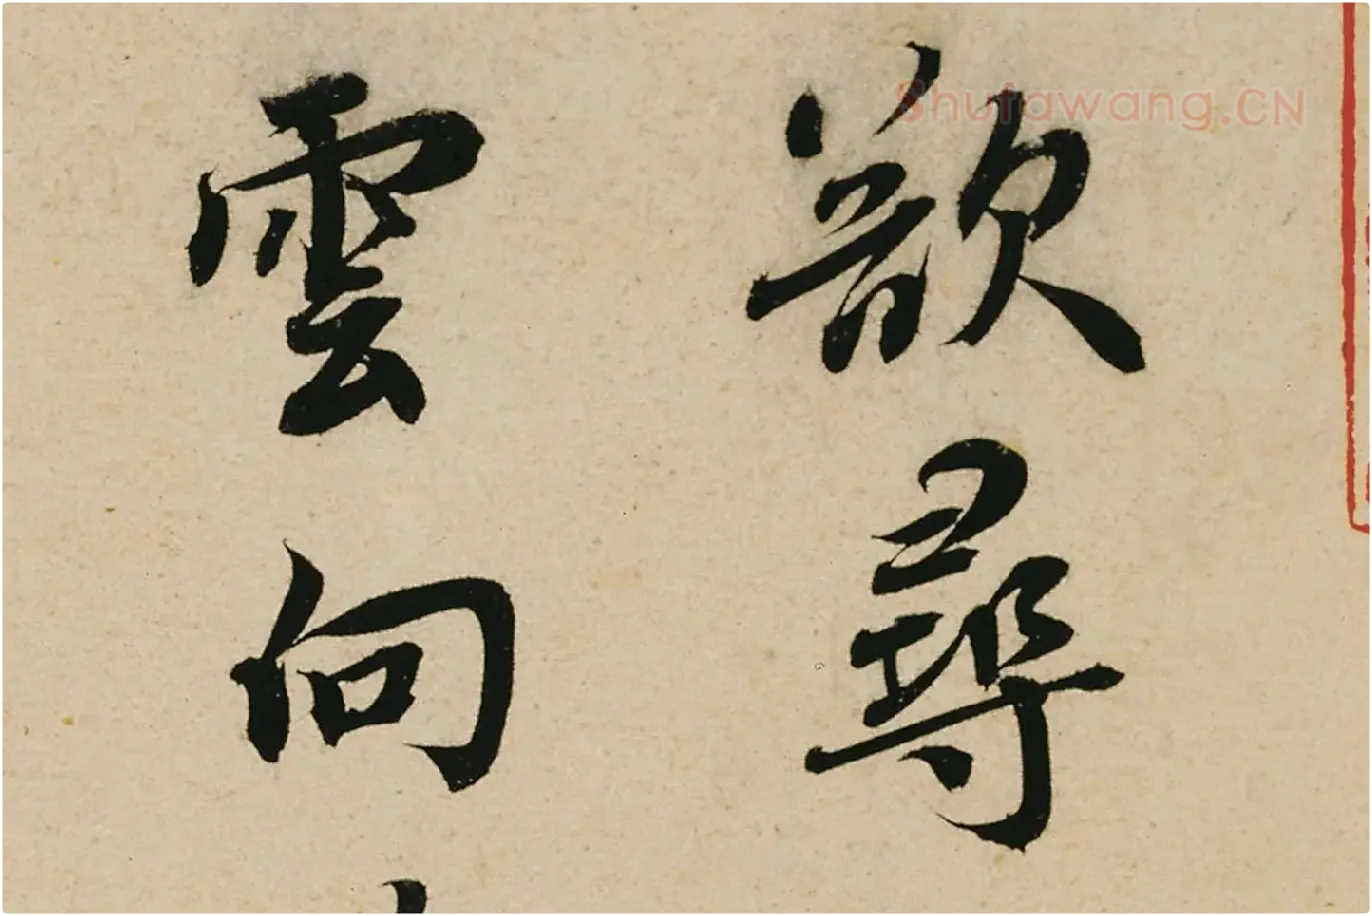 欲尋
雲向
Shufawang.CN